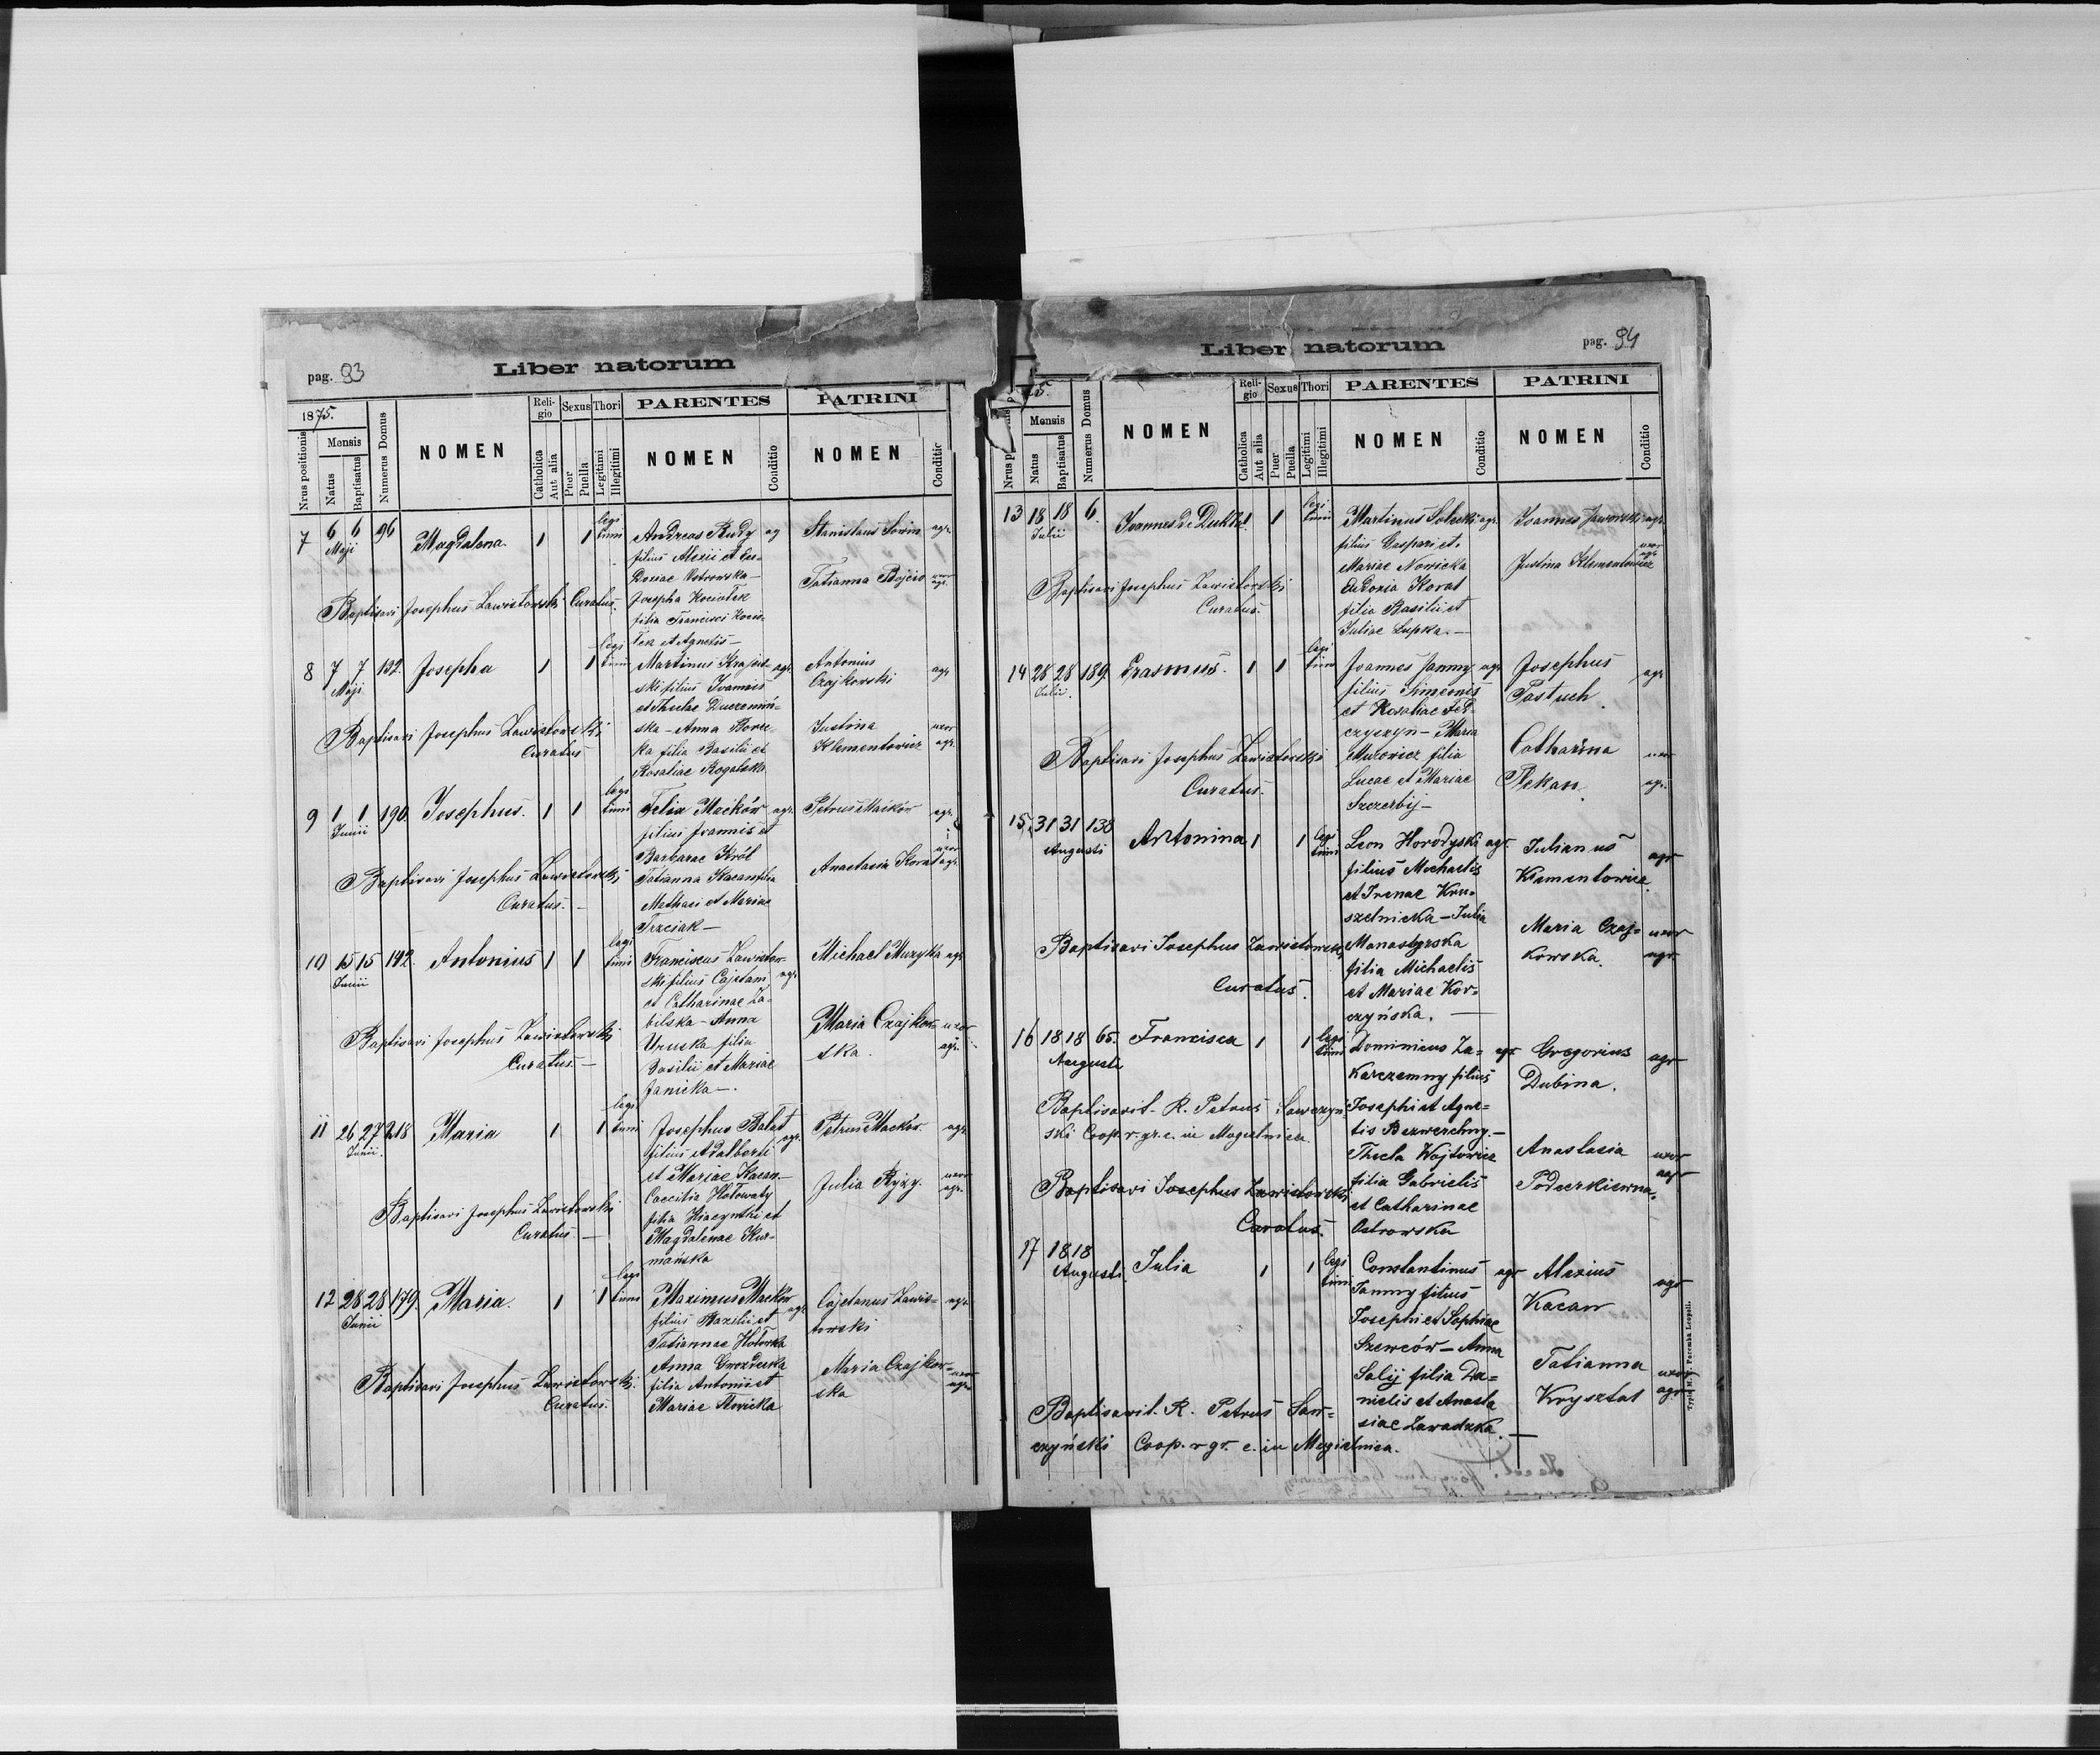 pag. 93
Liber natorum
1875.
Nrus positionis
Mensis
Natus
Baptisatus
Numerus Domus
NOMEN
Reli-
gio
Catholica
Aut alia
Sexus
Puer
Puella
Thori
Legitimi
Illegitimi
PARENTES
NOMEN
Conditio
PATRINI
NOMEN
Conditio
7 6 6 96 Magdalena. 1 1 legi
Maji timi
Andreas Rudy ag
filius Alexii et Eu-
doxiae Ostrowska —
Josepha Kociołek
filia Francisci Kocio-
łek et Agnetis —
Stanislaus Sowin agr.
Tatianna Bojcio uxor
agr.
Baptisavi Josephus Zawistowski Curatus.
8 7 7 132. Josepha 1 1 legi
Maji timi
Martinus Krajew- agr.
ski filius Joannis
et Theclae
ska — Anna
ka filia Basilii et
Rosaliae Rogalska
Antonius agr
Czajkowski
Justina uxor
Klementowicz agr.
Baptisavi Josephus Zawistowski
Curatus
9 1 1 190. Josephus. 1 1 legi
Junii timi
Felix Maćków agr.
filius Joannis et
Barbarae Król
Tatianna Kacan filia
Mathaei et Mariae
Trzciak —
Petrus Maćków agr.
Anastasia Korat uxor
agr.
Baptisavi Josephus Zawistowski
Curatus. —
10 15 15 142. Antonius 1 1 legi
Junii timi
Franciscus Zawistow-
ski filius Cajetani agr.
et Catharinae Za-
bilska — Anna
Uruska filia
Basilii et Mariae
Janicka —.
Michael Muzyka agr
Maria Czajkow- uxor
ska. agr.
Baptisavi Josephus Zawistowski
Curatus. —
11 26 27 218 Maria 1 1 legi
Junii. timi
Josephus Balat
filius Adalberti agr.
et Mariae Kacan —
Caecilia Hołowaty
filia Hiacynthi et
Magdalenae Kur-
mańska
Petrus Maćków. agr.
Julia Ryży. uxor
agr.
Baptisavi Josephus Zawistowski
Curatus. —
12 28 28 179. Maria. 1 1 legi
Junii timi
Maximus Maćków
filius Bazilii et agr.
Tatiannae Hołowka
Anna Gwozdecka
filia Antonii et
Mariae Nowicka
Cajetanus Zawis- agr.
towski
Maria Czajkow- uxor
ska agr.
Baptisavi Josephus Zawistowski.
Curatus.
pag. 94
Liber natorum
75.
Mensis
Natus
Baptisatus
Numerus Domus
NOMEN
Reli-
gio
Catholica
Aut alia
Sexus
Puer
Puella
Thori
Legitimi
Illegitimi
PARENTES
NOMEN
Conditio
PATRINI
NOMEN
Conditio
13 18 18 6. Joannes de Dukla 1 1 legi
Julii timi
Martinus Solecki agr.
filius Gaspari et
Mariae Nowicka
Eudoxia Korat
filia Basilii et
Juliae Łupka. —
Joannes Jaworski agr.
Justina Klementowicz uxor
agr.
Baptisavi Josephus Zawistowski
Curatus.
14 28 28 189. Erasmus. 1 1 legi
Julii. timi
Joannes Jammy agr
filius Simeonis
et Rosaliae Fed-
czyszyn — Maria
filia
Lucae et Mariae
Szczerbij —
Josephus agr
Pastuch.
Catharina uxor
Plekan. agr.
Baptisavi Josephus Zawistowski
Curatus.
15. 31 31 138 Antonina 1 1 legi
Augusti timi
Leon Horodyski agr.
filius Michaelis
et Irenae Kru-
szelnicka — Julia
Manastyrska
filia Michaelis
et Mariae Kor-
czyńska. —
Julianus agr
Klementowicz.
Maria Czaj- uxor
kowska. agr.
Baptisavi Josephus Zawistowski
Curatus.
16 18 18 65. Francisca 1 1 legi
Augusti timi
Dominicus Za- agr.
karczemny filius
Josephi et Agne-
tis Bezwerchny. —
Thecla Wojtowicz
filia Gabrielis
et Catharinae
Ostrowska
Gregorius agr
Dubina.
Anastasia uxor
agr
Baptisavit R. Petrus Sawczyń-
ski Coop. r. gr. c. in Mogielnica.
Baptisavi Josephus Zawistowski
Curatus.
17 18 18 Julia 1 1 legi
Augusti. timi
Constantinus agr
Jammy filius
Josephi et Sophiae
Szewców — Anna
Salij filia Da-
nielis et Anasta
siae Zawadzka. —
Alexius agr
Kacan
Tatianna uxor
Krysztal agr
Baptisavit R. Petrus Saw-
czyński Coop. r. gr. c. in Mogielnica.